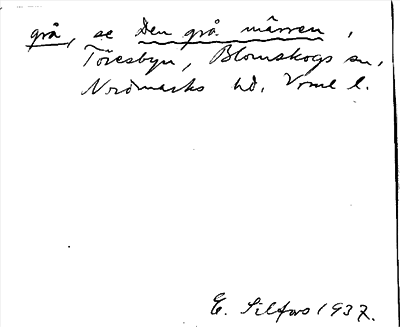 grå, se Den grå märren,
Töresbyn, Blomskogs sn,
Nordmarks hd. Vrml l.
E. Silfors 1937.